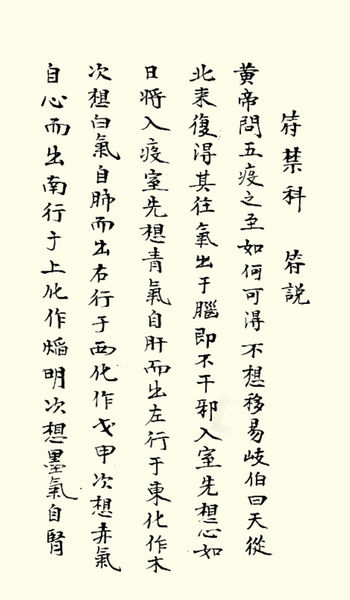 符禁科　符説
黄帝問五疫之至如何可得不想移易岐伯曰天從
北来復得其往氣出于腦即不干邪入室先想心如
日将入疫室先想青氣自肝而出左行于東化作木
次想白氣自肺而出右行于西化作戈甲次想赤氣
自心而出南行于上化作焰明次想墨氣自腎